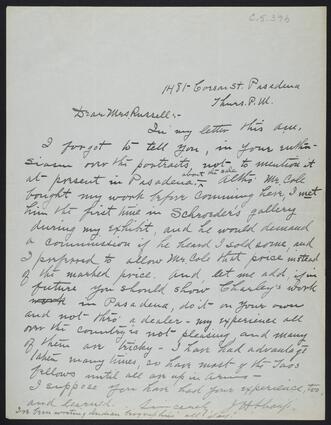 C.5.396
1481 Corson St. Pasadena
Thurs. P.M.
Dear Mrs Russell:-
In my letter this am,
I forgot to tell you, in your enthu-
siasm over the portraits, not to mention it
about the sale
at present in Pasadena. Altho. Mr Cole
bought my work before comming here, I met
him the first time in Schroeder's gallery
during my exhibit, and he would demand
a commission if he heard I sold some, and
I prefered to allow Mr Cole that price instead
of the marked price. And let me add, if in
future you should show Charley's work
in Pasadena, do it on your own
and not thro' a dealer - my experience all
over the country is not pleasing and many
of them are tricky - I have had advantage
taken many times, so have most of the Taos
fellows until all are up in arms -
I suppose you have had your experience, too
and learned. Sincerely, J H Sharp.
I've been writing Indian biographies all day!